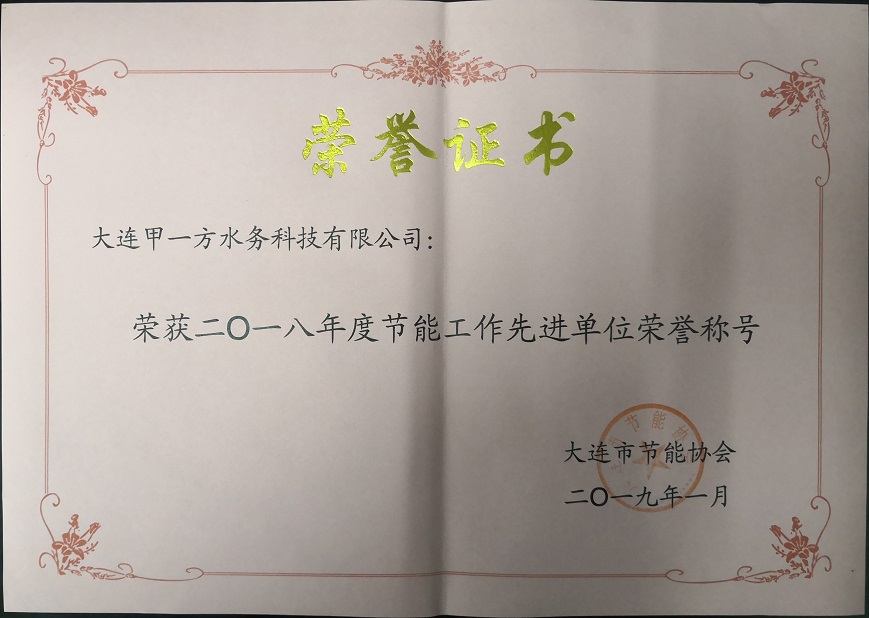 荣誉证书
大连甲一方水务科技有限公司：
荣获二〇一八年度节能工作先进单位荣誉称号
大连市节能协会
二〇一九年一月